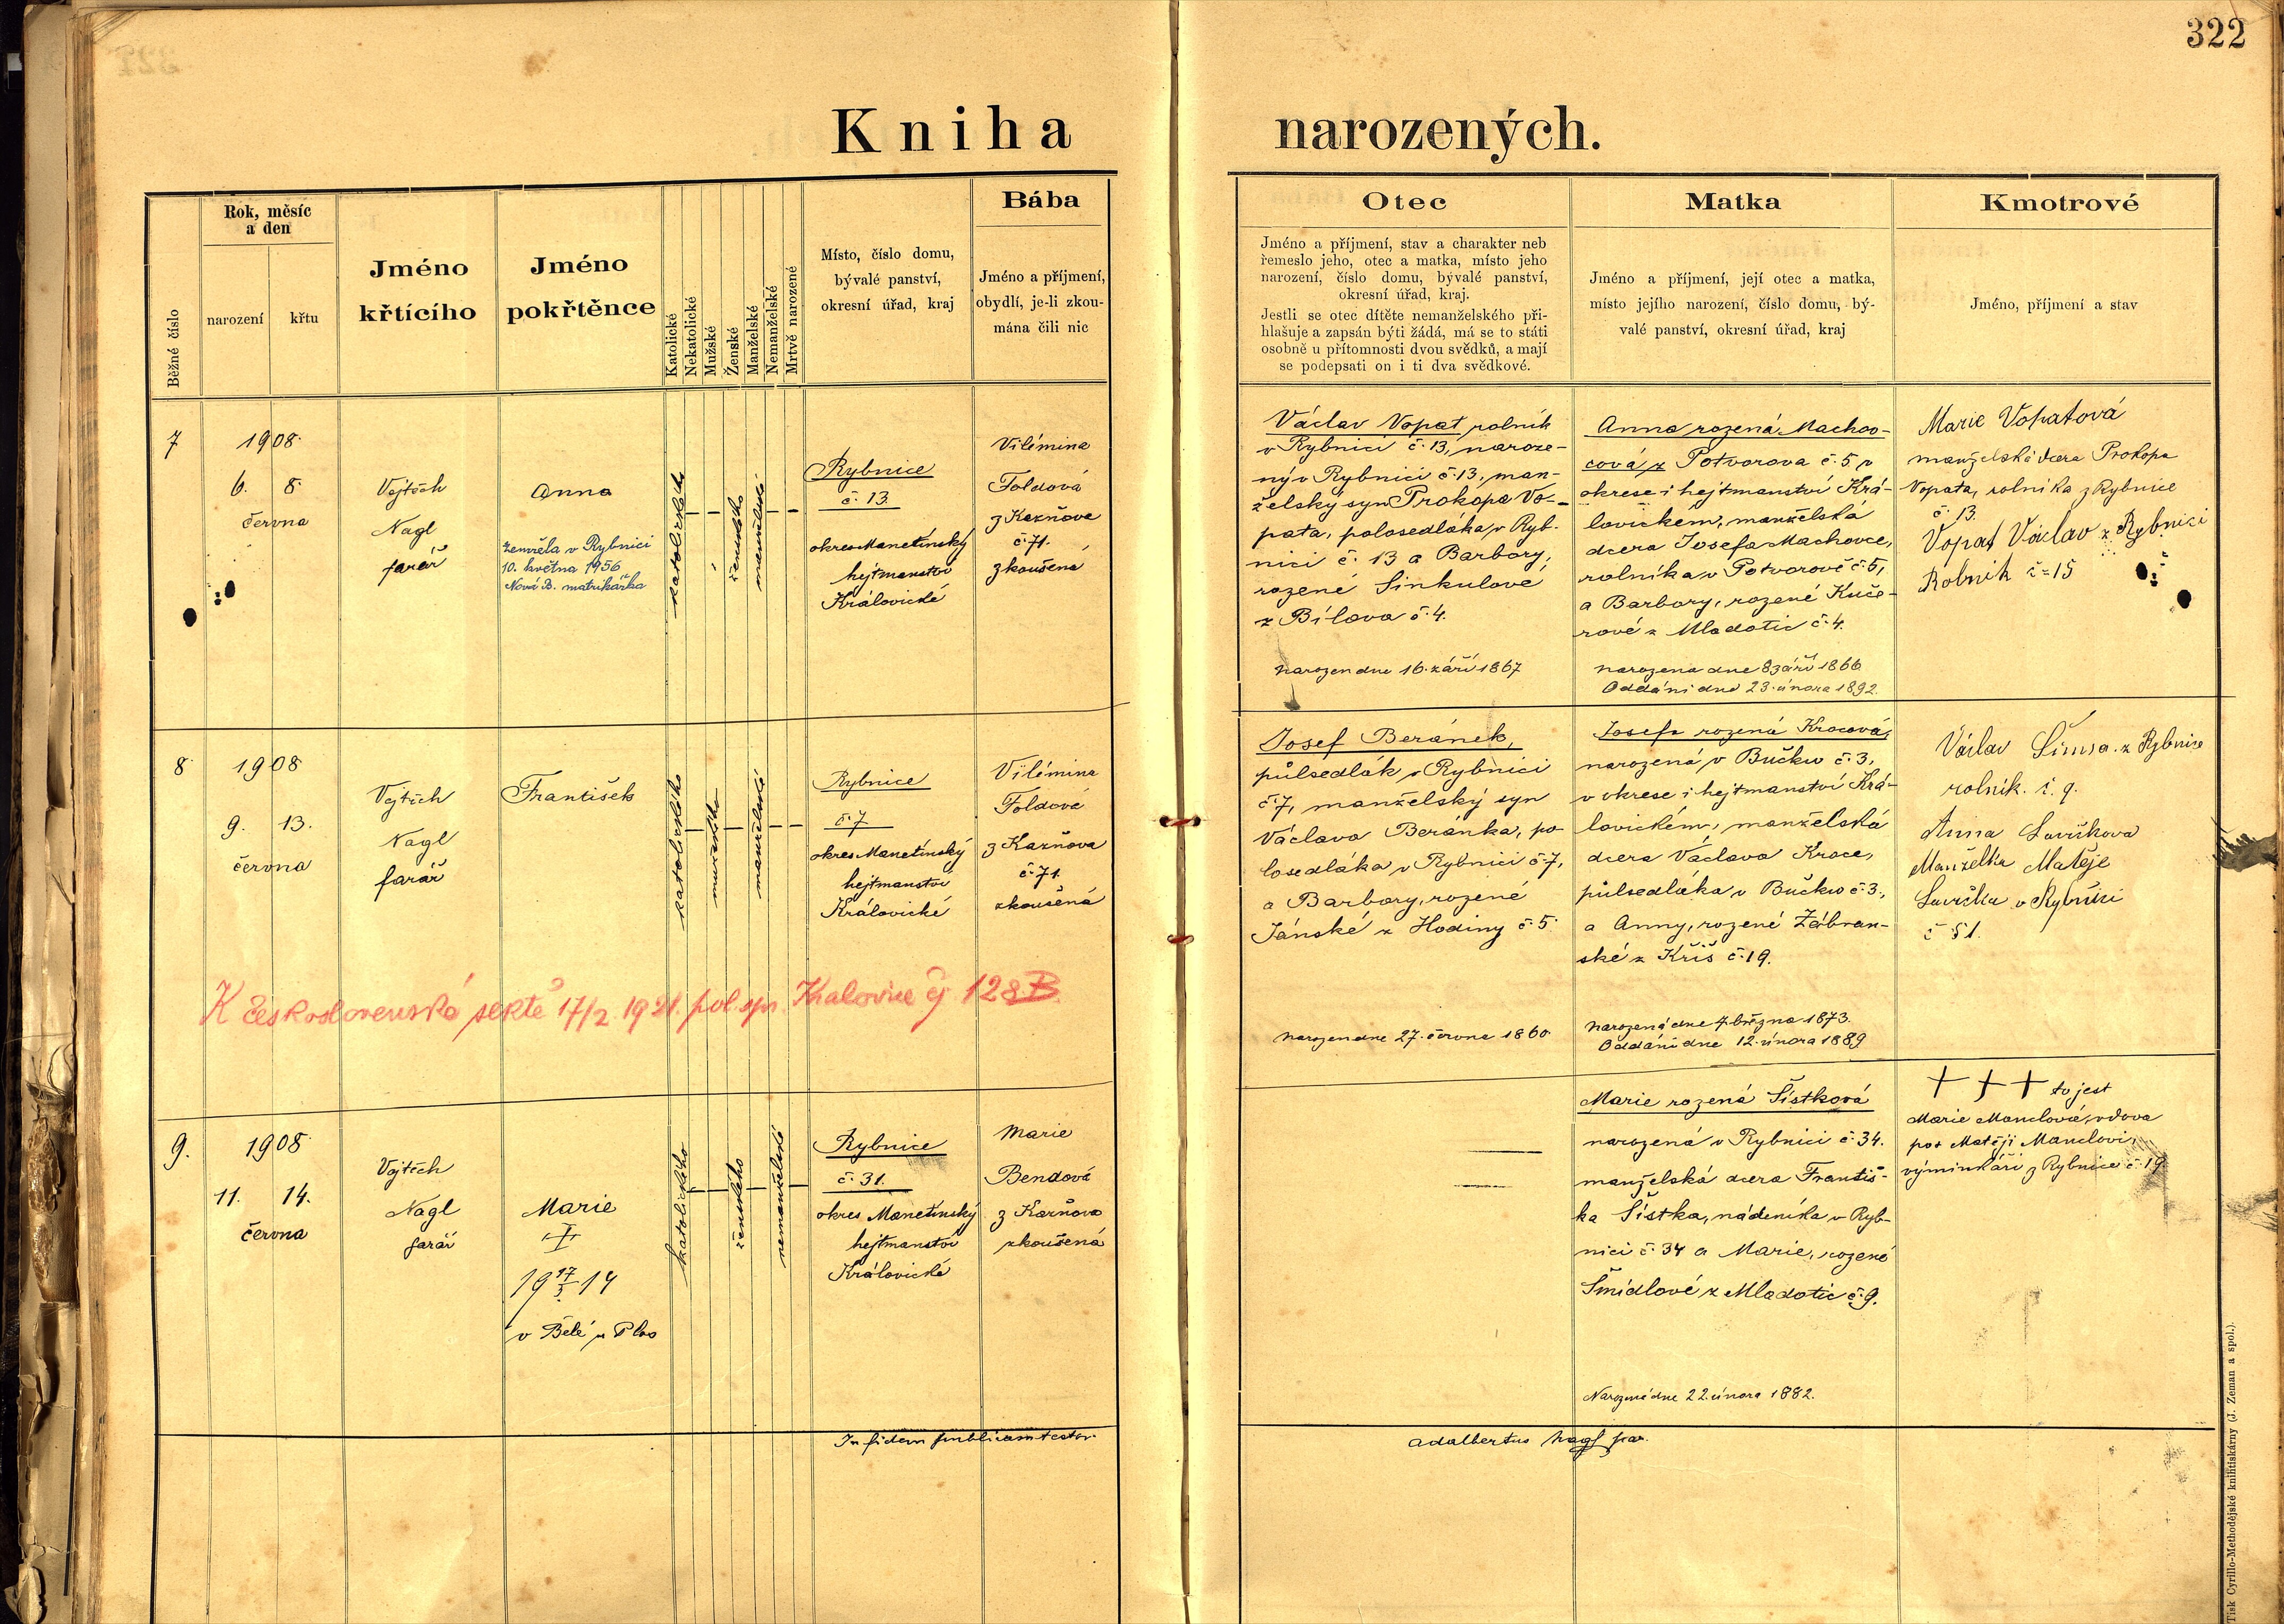 322
Kniha narozených.
Běžné číslo
Rok, měsíc
a den
narození
křtu
Jméno
křtícího
Jméno
pokřtěnce
Katolické
Nekatolické
Mužské
Ženské
Manželské
Nemanželské
Mrtvě narozené
Místo, číslo domu,
bývalé panství,
okresní úřad, kraj
Bába
Jméno a příjmení,
obydlí, je-li zkou-
mána čili nic
Otec
Jméno a příjmení, stav a charakter neb
řemeslo jeho, otec a matka, místo jeho
narození, číslo domu, bývalé panství,
okresní úřad, kraj.
Jestli se otec dítěte nemanželského při-
hlašuje a zapsán býti žádá, má se to státi
osobně u přítomnosti dvou svědků, a mají
se podepsati on i ti dva svědkové.
Matka
Jméno a příjmení, její otec a matka,
místo jejího narození, číslo domu, bý-
valé panství, okresní úřad, kraj
Kmotrové
Jméno, příjmení a stav
7
1908.
6. 8.
června
Vojtěch
Nagl
farář
Anna
Zemřela v Rybnici
10. května 1956
Nová B. matrikářka
katolického
ženského
manželské
Rybnice
č. 13
okres Manetínský
hejtmanství
Královické
Vilémina
Foldová
z Kazňova
č. 71.
zkoušená
Václav Vopat rolník
v Rybnici č. 13, naroze-
ný v Rybnici č. 13, man-
želský syn Prokopa Vo-
pata, polosedláka v Ryb-
nici č. 13 a Barbory,
rozené Sinkulové
z Bílova č. 4.
narozen dne 16. září 1867
Anna rozená Machov-
cová z Potvorova č. 5 v
okrese i hejtmanství Krá-
lovickém, manželská
dcera Josefa Machovce,
rolníka v Potvorově č. 5,
a Barbory, rozené Kuče-
rové z Mladotic č. 4.
narozena dne 8 září 1866
Oddáni dne 23. února 1892.
Marie Vopatová
manželská dcera Prokopa
Vopata, rolníka z Rybnice
č. 13.
Vopat Václav z Rybnici
Rolník č= 15
8.
1908
9. 13.
června
Vojtěch
Nagl
farář
František
katolického
mužského
manželské
Rybnice
č. 7
okres Manetínský
hejtmanství
Královické
Vilémina
Foldová
z Kazňova
č. 71.
zkoušená
Josef Beránek,
půlsedlák v Rybnici
č. 7, manželský syn
Václava Beránka, po-
losedláka v Rybnici č. 7,
a Barbory, rozené
Jánské z Hodiny č. 5.
narozen dne 27. června 1860
Josefa rozená Krocová,
narozená v Bučku č. 3,
v okrese i hejtmanství Krá-
lovickém, manželská
dcera Václava Kroce,
půlsedláka v Bučku č. 3.,
a Anny, rozené Zábran-
ské z Kříš č. 19.
narozená dne 7 března 1873.
Oddáni dne 12. února 1889
Václav Šimsa z Rybnice
rolník. č. 9.
Anna
Manželka Matěje
v Rybnici
č 51.
K Československé sektě 17/2. 1921. pol. spr. Kralovice čj. 128 B.
9.
1908.
11. 14.
června
Vojtěch
Nagl
farář
Marie
19 17/3 14
v Bělé u Plas
katolického
ženského
nemanželské
Rybnice
č. 31.
okres Manetínský
hejtmanství
Královické
Marie
Bendová
z Kazňova
zkoušená
Marie rozená Šístková
narozená v Rybnici č. 34.
manželská dcera Františ-
ka Šístka, nádeníka v Ryb-
nici č. 34 a Marie, rozené
Šmídlové z Mladotic č. 9.
Narozená dne 22. února 1882.
+ + + to jest
Marie Manclová, vdova
po † Matěji Manclovi,
výminkáři z Rybnice č. 19
In fidem publicam testor
Adalbertus Nagl par.
Tisk Cyrillo-Methodějské knihtiskárny (J. Zeman a spol.).